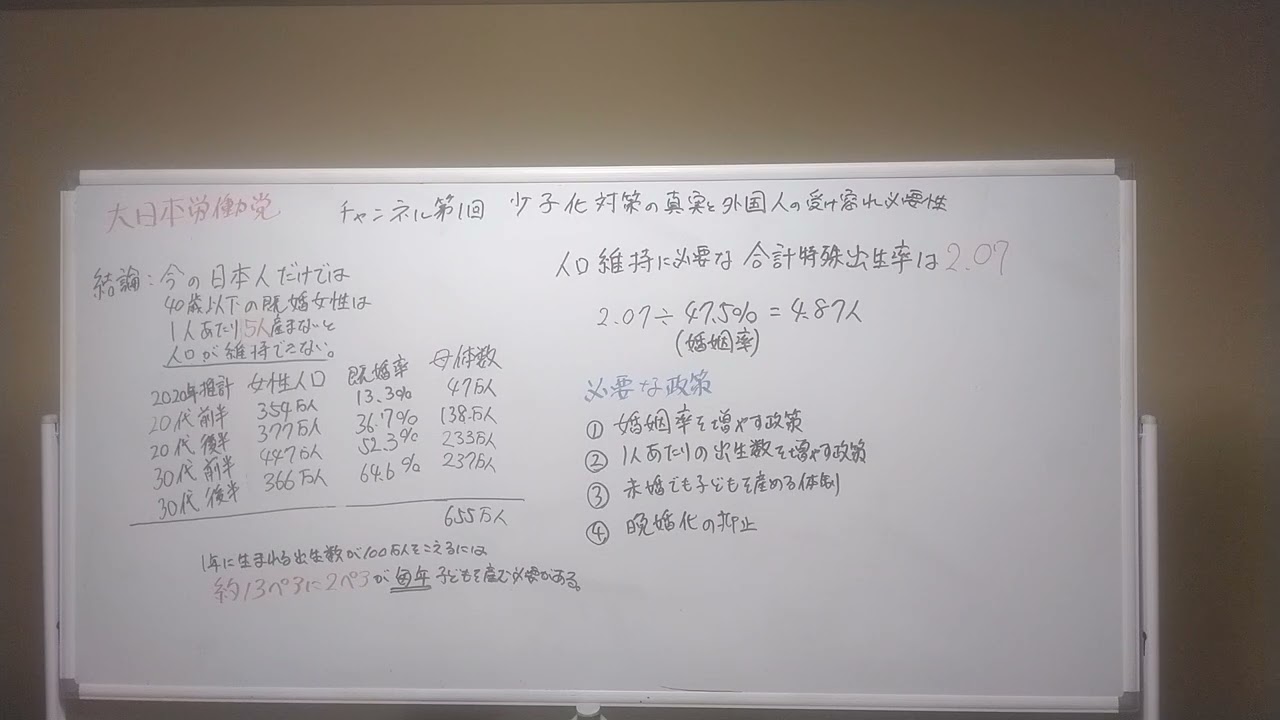 大日本労働党
チャンネル第1回 少子化対策の真実と外国人の受け容れ必要性
結論：今の日本人だけでは
40歳以下の既婚女性は
1人あたり5人産まないと
人口が維持できない。
2020年推計 女性人口 既婚率 母体数
20代前半 354万人 13.3% 47万人
20代後半 377万人 36.7% 138万人
30代前半 447万人 52.3% 233万人
30代後半 366万人 64.6% 237万人
655万人
1年に生まれる出生数が100万人をこえるには
約13ペアに2ペアが毎年子どもを産む必要がある。
人口維持に必要な合計特殊出生率は2.07
2.07÷47.5%=4.87人
(婚姻率)
必要な政策
① 婚姻率を増やす政策
② 1人あたりの出生数を増やす政策
③ 未婚でも子どもを産める体制
④ 晩婚化の抑止